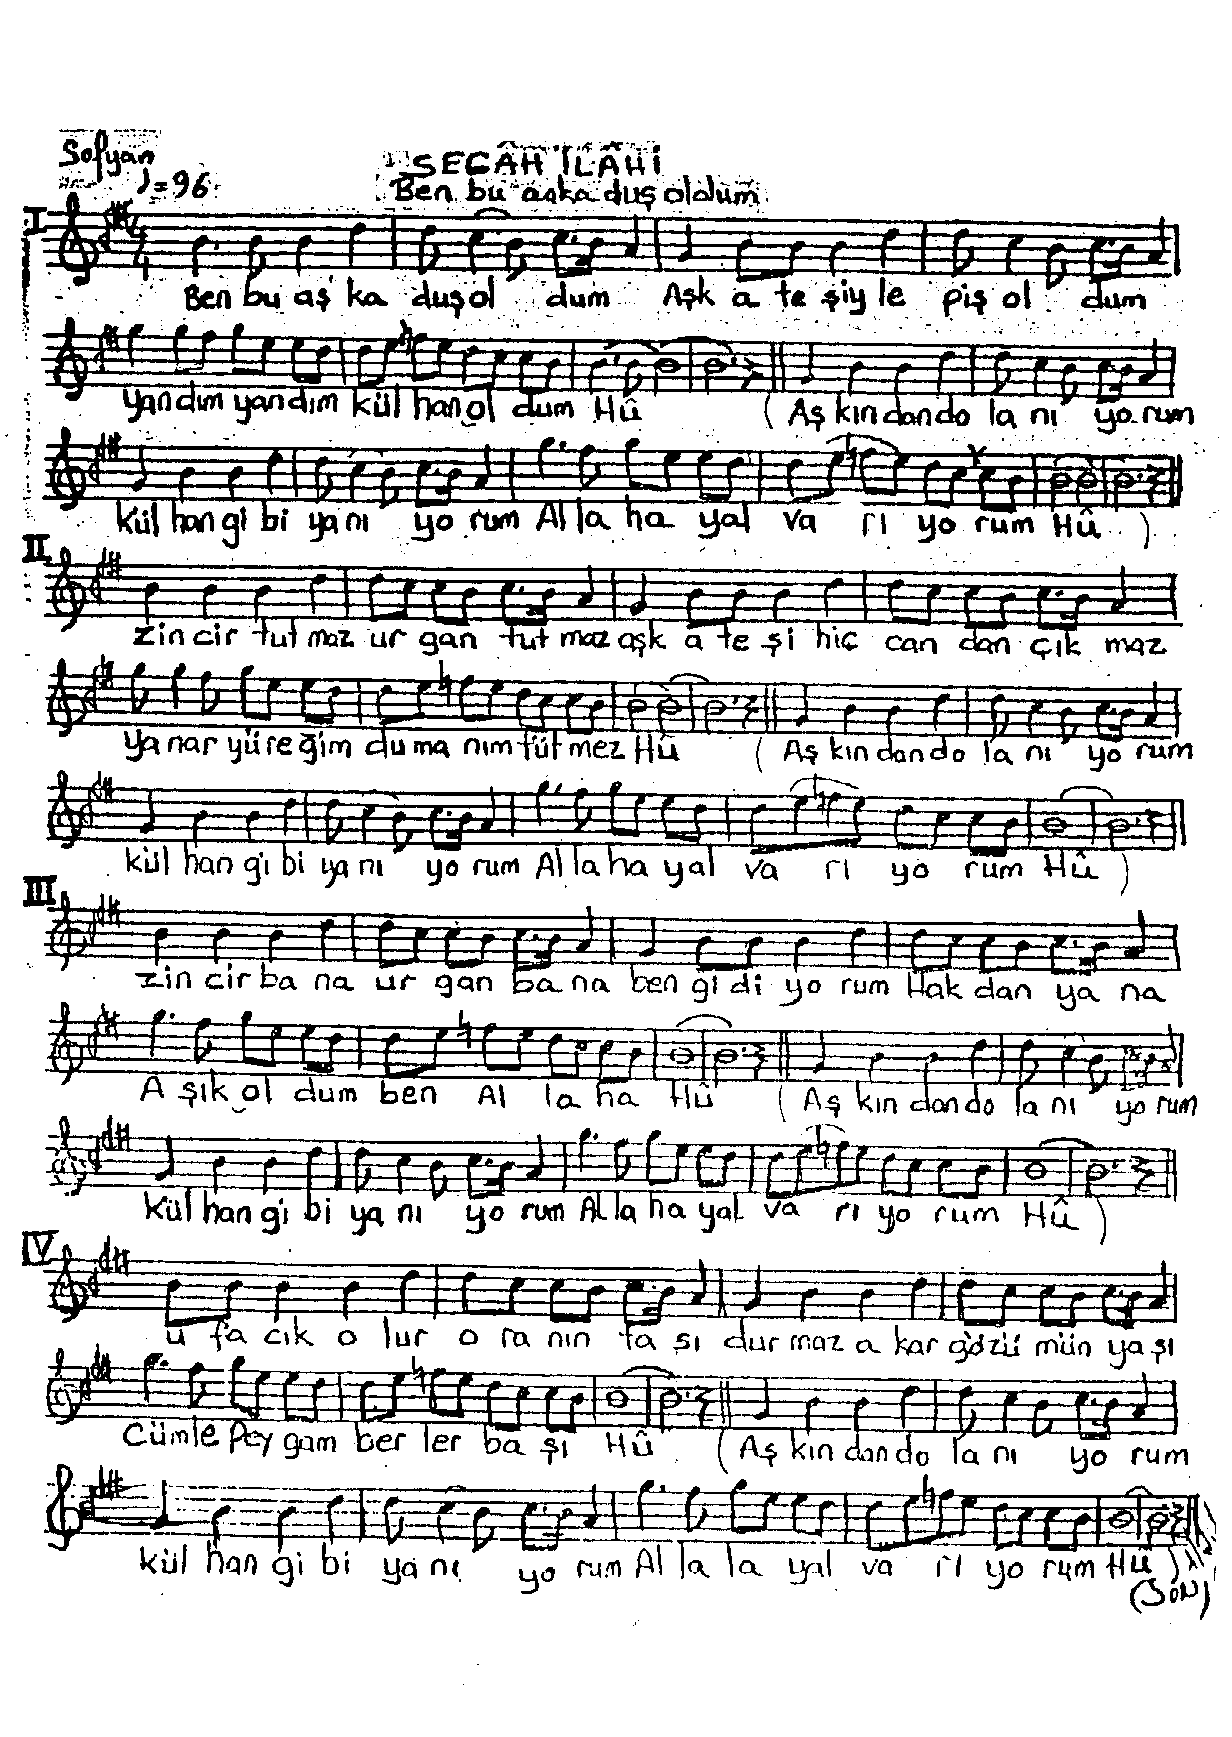 Sofyan
♩=96
SEGÂH İLÂHİ
Ben bu aşka duş oldum
I
Ben bu aş ka duş ol dum Aşk a te şiy le piş ol dum
yan dım yan dım kül han ol dum Hû ( Aş kın dan do la nı yo rum
kül han gi bi ya nı yo rum Al la ha yal va rı yo rum Hû )
II
zin cir tut maz ur gan tut maz aşk a te şi hiç can dan çık maz
ya nar yü re ğim du ma nım tüt mez Hû ( Aş kın dan do la nı yo rum
kül han gi bi ya nı yo rum Al la ha yal va rı yo rum Hû )
III
zin cir ba na ur gan ba na ben gi di yo rum Hak dan ya na
A şık ol dum ben Al la ha Hû ( Aş kın dan do la nı yo rum
kül han gi bi ya nı yo rum Al la ha yal va rı yo rum Hû )
IV
u fa cık o lur o ra nın ta şı dur maz a kar gö zü mün ya şı
Cüm le Pey gam ber ler ba şı Hû ( Aş kın dan do la nı yo rum
kül han gi bi ya nı yo rum Al la la yal va rı yo rum Hû )
(SON)